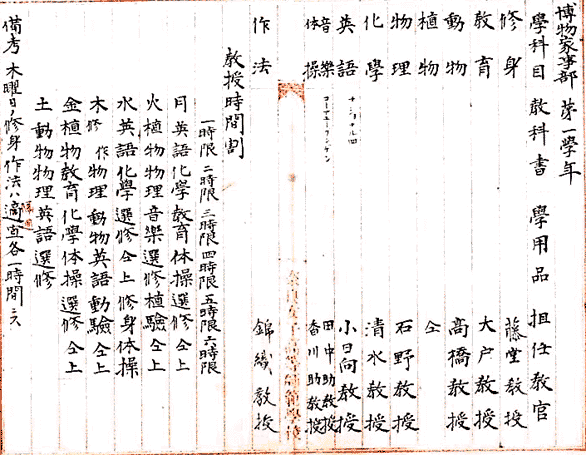 博物家事部 第一學年
學科目 教科書 學用品 担任教官
修身 藤堂教授
教育 大戸教授
動物 高橋教授
植物 仝
物理 石野教授
化學 清水教授
英語 ナショナル四 小日向教授
音樂 コーリューブンゲン 田中助教授
体操 香川助教授
作法 錦織教授
教授時間割
一時限 二時限 三時限 四時限 五時限 六時限
月 英語 化學 教育 体操 選修 仝上
火 植物 物理 音樂 選修 植驗 仝上
水 英語 化學 選修 仝上 修身 体操
木 修 作 物理 動物 英語 動驗 仝上
金 植物 教育 化學 体操 選修 仝上
土 動物 物理 英語 選修
備考 木曜日ノ修身作法ハ適宜各一時間ニス
奈良女子高等師範學校